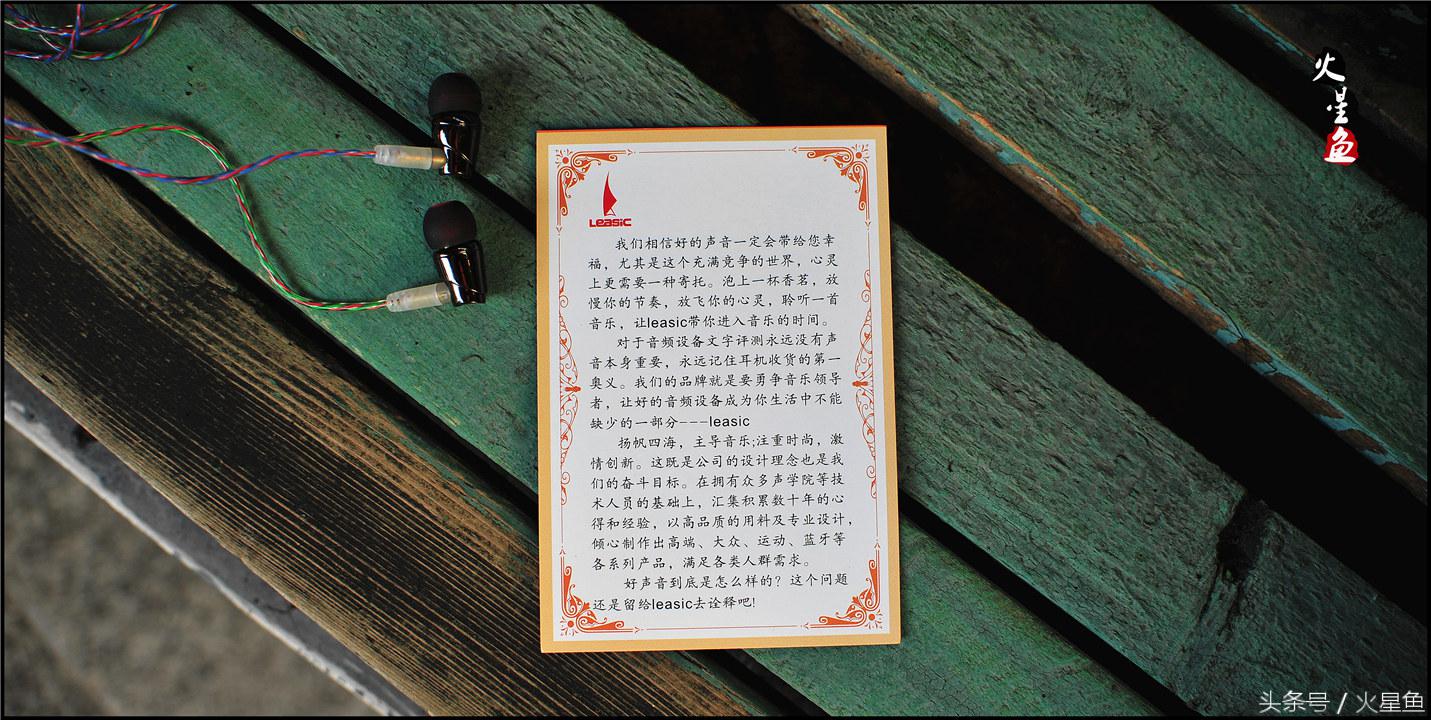 火星鱼
Leasic
我们相信好的声音一定会带给您幸
福，尤其是这个充满竞争的世界，心灵
上更需要一种寄托。泡上一杯香茗，放
慢你的节奏，放飞你的心灵，聆听一首
音乐，让leasic带你进入音乐的时间。
对于音频设备文字评测永远没有声
音本身重要，永远记住耳机收货的第一
奥义。我们的品牌就是要勇争音乐领导
者，让好的音频设备成为你生活中不能
缺少的一部分---leasic
扬帆四海，主导音乐;注重时尚，激
情创新。这既是公司的设计理念也是我
们的奋斗目标。在拥有众多声学院等技
术人员的基础上，汇集积累数十年的心
得和经验，以高品质的用料及专业设计，
倾心制作出高端、大众、运动、蓝牙等
各系列产品，满足各类人群需求。
好声音到底是怎么样的？这个问题
还是留给leasic去诠释吧!
头条号 / 火星鱼